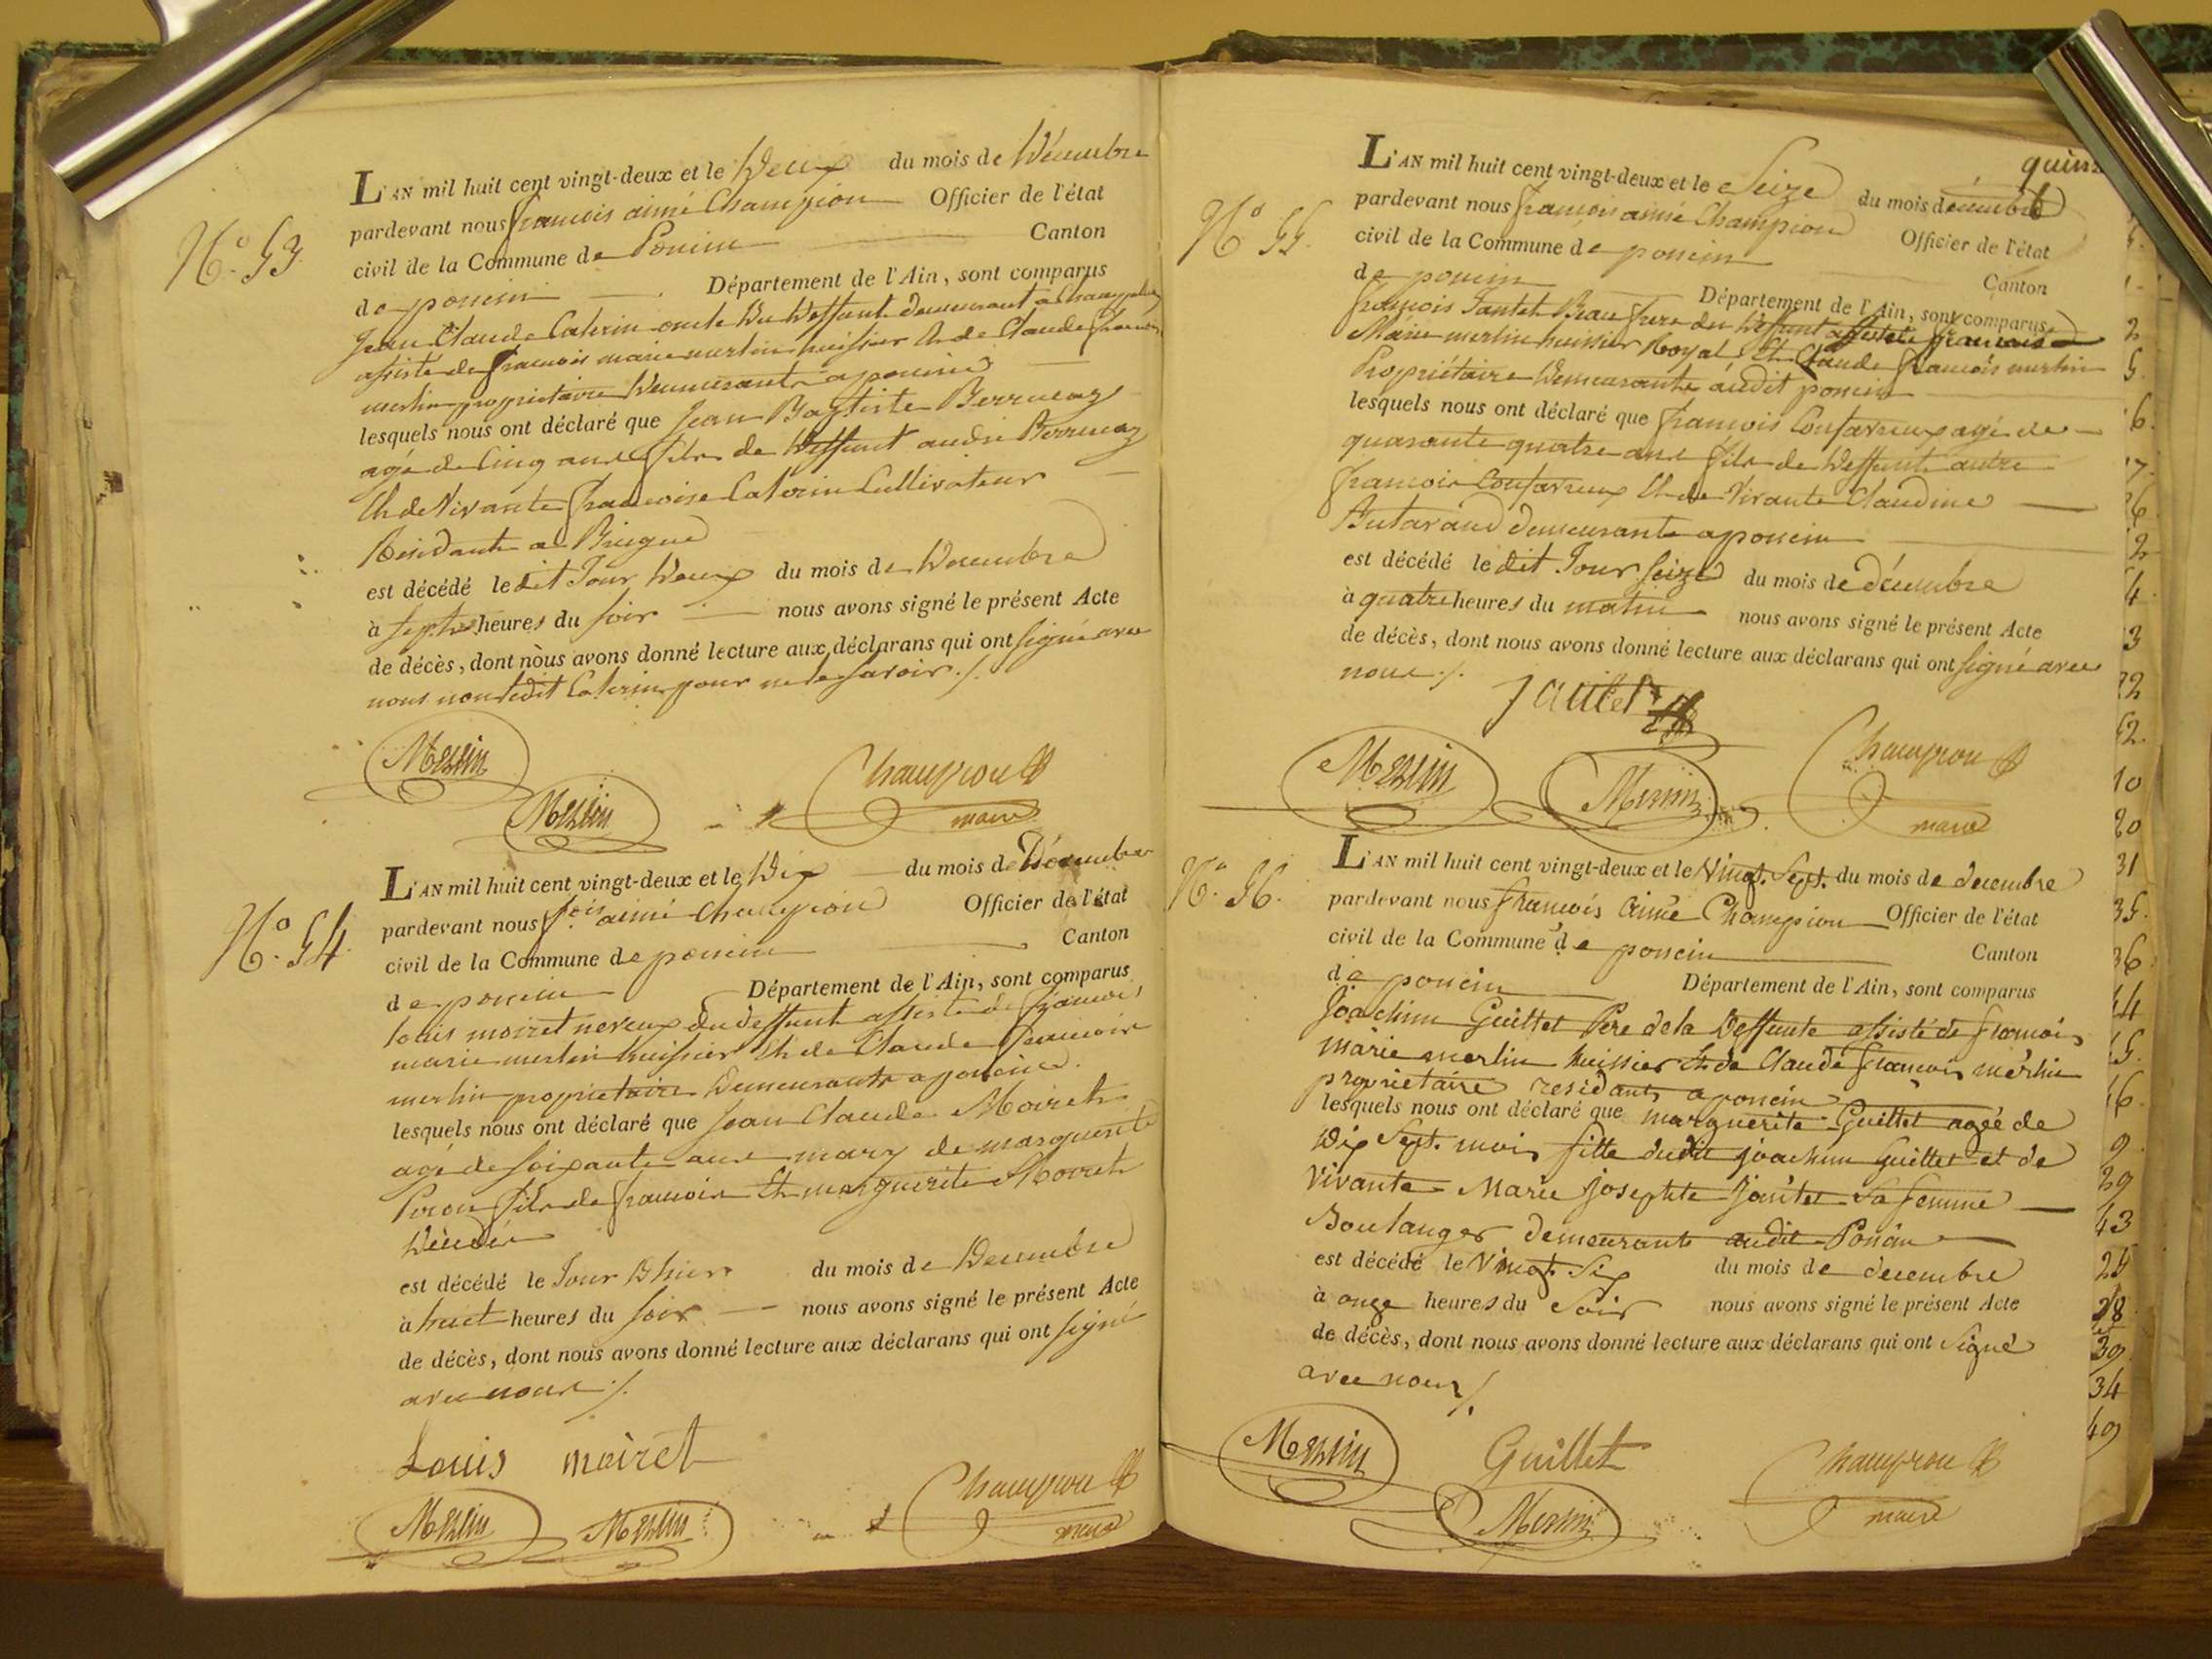 N.° 53.
L'AN mil huit cent vingt-deux et le Deux du mois de Décembre
pardevant nous francois aimé Champion Officier de l'état
civil de la Commune de Poncin Canton
de poncin Département de l'Ain, sont comparus
Jean Claude Caterin oncle du deffunt demeurant a
assisté de francois marie merlin huissier Et de Claude francois
merlin propriétaire demeurants a poncin
lesquels nous ont déclaré que Jean Baptiste Berrucaz
agé de Cinq ans fils de deffunt andré Berrucaz
Et de Vivante francoise Caterin Cultivateur
Résidante a
est décédé le dit Jour deux du mois de Décembre
à sept heures du soir nous avons signé le présent Acte
de décès, dont nous avons donné lecture aux déclarans qui ont signé avec
nous non ledit Caterin pour ne le savoir ./.
Merlin
Merlin
Champion
maire
N.° 54.
L'AN mil huit cent vingt-deux et le Dix du mois de Décembre
pardevant nous f.ois aimé Champion Officier de l'état
civil de la Commune de poncin Canton
de poncin Département de l'Ain, sont comparus
louis moiret neveux du deffunt assisté de francois
marie merlin huissier Et de Claude francois
merlin propriétaire demeurants a poncin.
lesquels nous ont déclaré que Jean Claude Moiret
agé de soixante ans mary de marguerite
Piron fils de francois Et marguerite Moiret
décédés
est décédé le Jour d'hier du mois de Décembre
à huit heures du soir nous avons signé le présent Acte
de décès, dont nous avons donné lecture aux déclarans qui ont signé
avec nous ./.
Louis moiret
Merlin Merlin
Champion
maire
quinz
N.° 55.
L'AN mil huit cent vingt-deux et le Seize du mois décembre
pardevant nous francois aimé Champion Officier de l'état
civil de la Commune de poncin Canton
de poncin Département de l'Ain, sont comparus
francois Jantet Beau frere du deffunt assisté de francois
Marie merlin huissier Royal Et Claude francois merlin
Propriétaire demeurants audit poncin
lesquels nous ont déclaré que francois Confavreux agé de
quarante quatre ans fils de deffunt autre
francois Confavreux Et de Vivante Claudine
Butavand demeurante a poncin
est décédé le dit Jour seize du mois de décembre
à quatre heures du matin nous avons signé le présent Acte
de décès, dont nous avons donné lecture aux déclarans qui ont signé avec
nous ./.
Merlin
Merlin
Champion
maire
N.° 56.
L'AN mil huit cent vingt-deux et le Vingt Sept. du mois de decembre
pardevant nous francois Aimé Champion Officier de l'état
civil de la Commune de poncin Canton
de poncin Département de l'Ain, sont comparus
Joachim Guillet Pere de la Deffunte assisté de francois
marie merlin huissier Et de Claude francois merlin
propriétaire residants a poncin
lesquels nous ont déclaré que marguerite Guillet agée de
Dix Sept. mois fille dudit joachim Guillet et de
Vivante Marie Josephte Jantet Sa femme
Boulanger demeurants audit Poncin
est décédé le Vingt. Six du mois de decembre
à onze heures du Soir nous avons signé le présent Acte
de décès, dont nous avons donné lecture aux déclarans qui ont Signé
avec nous ./.
Merlin Guillet
Merlin
Champion
maire
2
5.
6.
7.
6
2
4
3
22
52.
10
20
31
35.
36
44
45.
46.
9
29
43
25
28
39
34
49